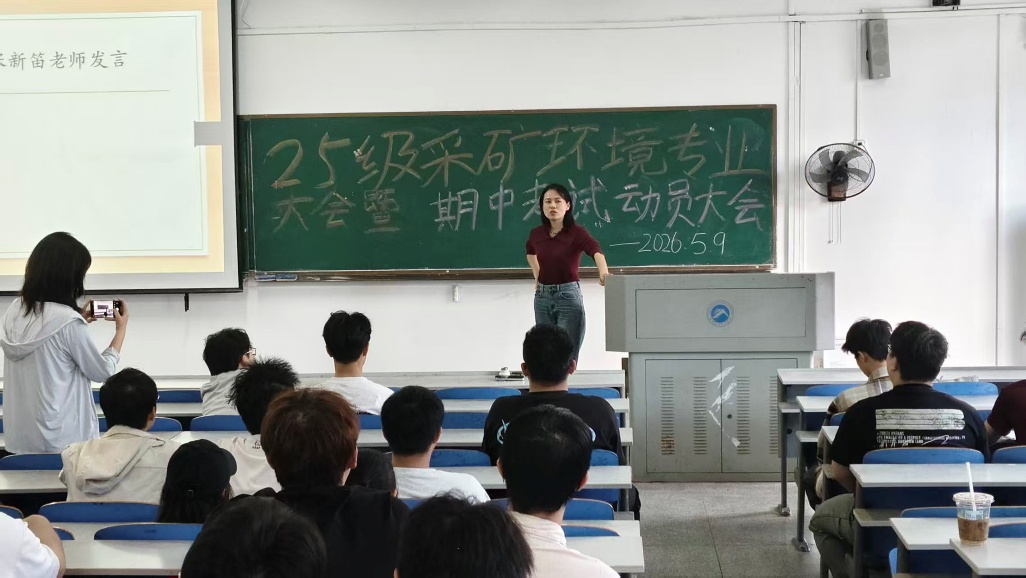 新笛老师发言
25级采矿环境专业
大会暨 期中考试动员大会
—2026.5.9